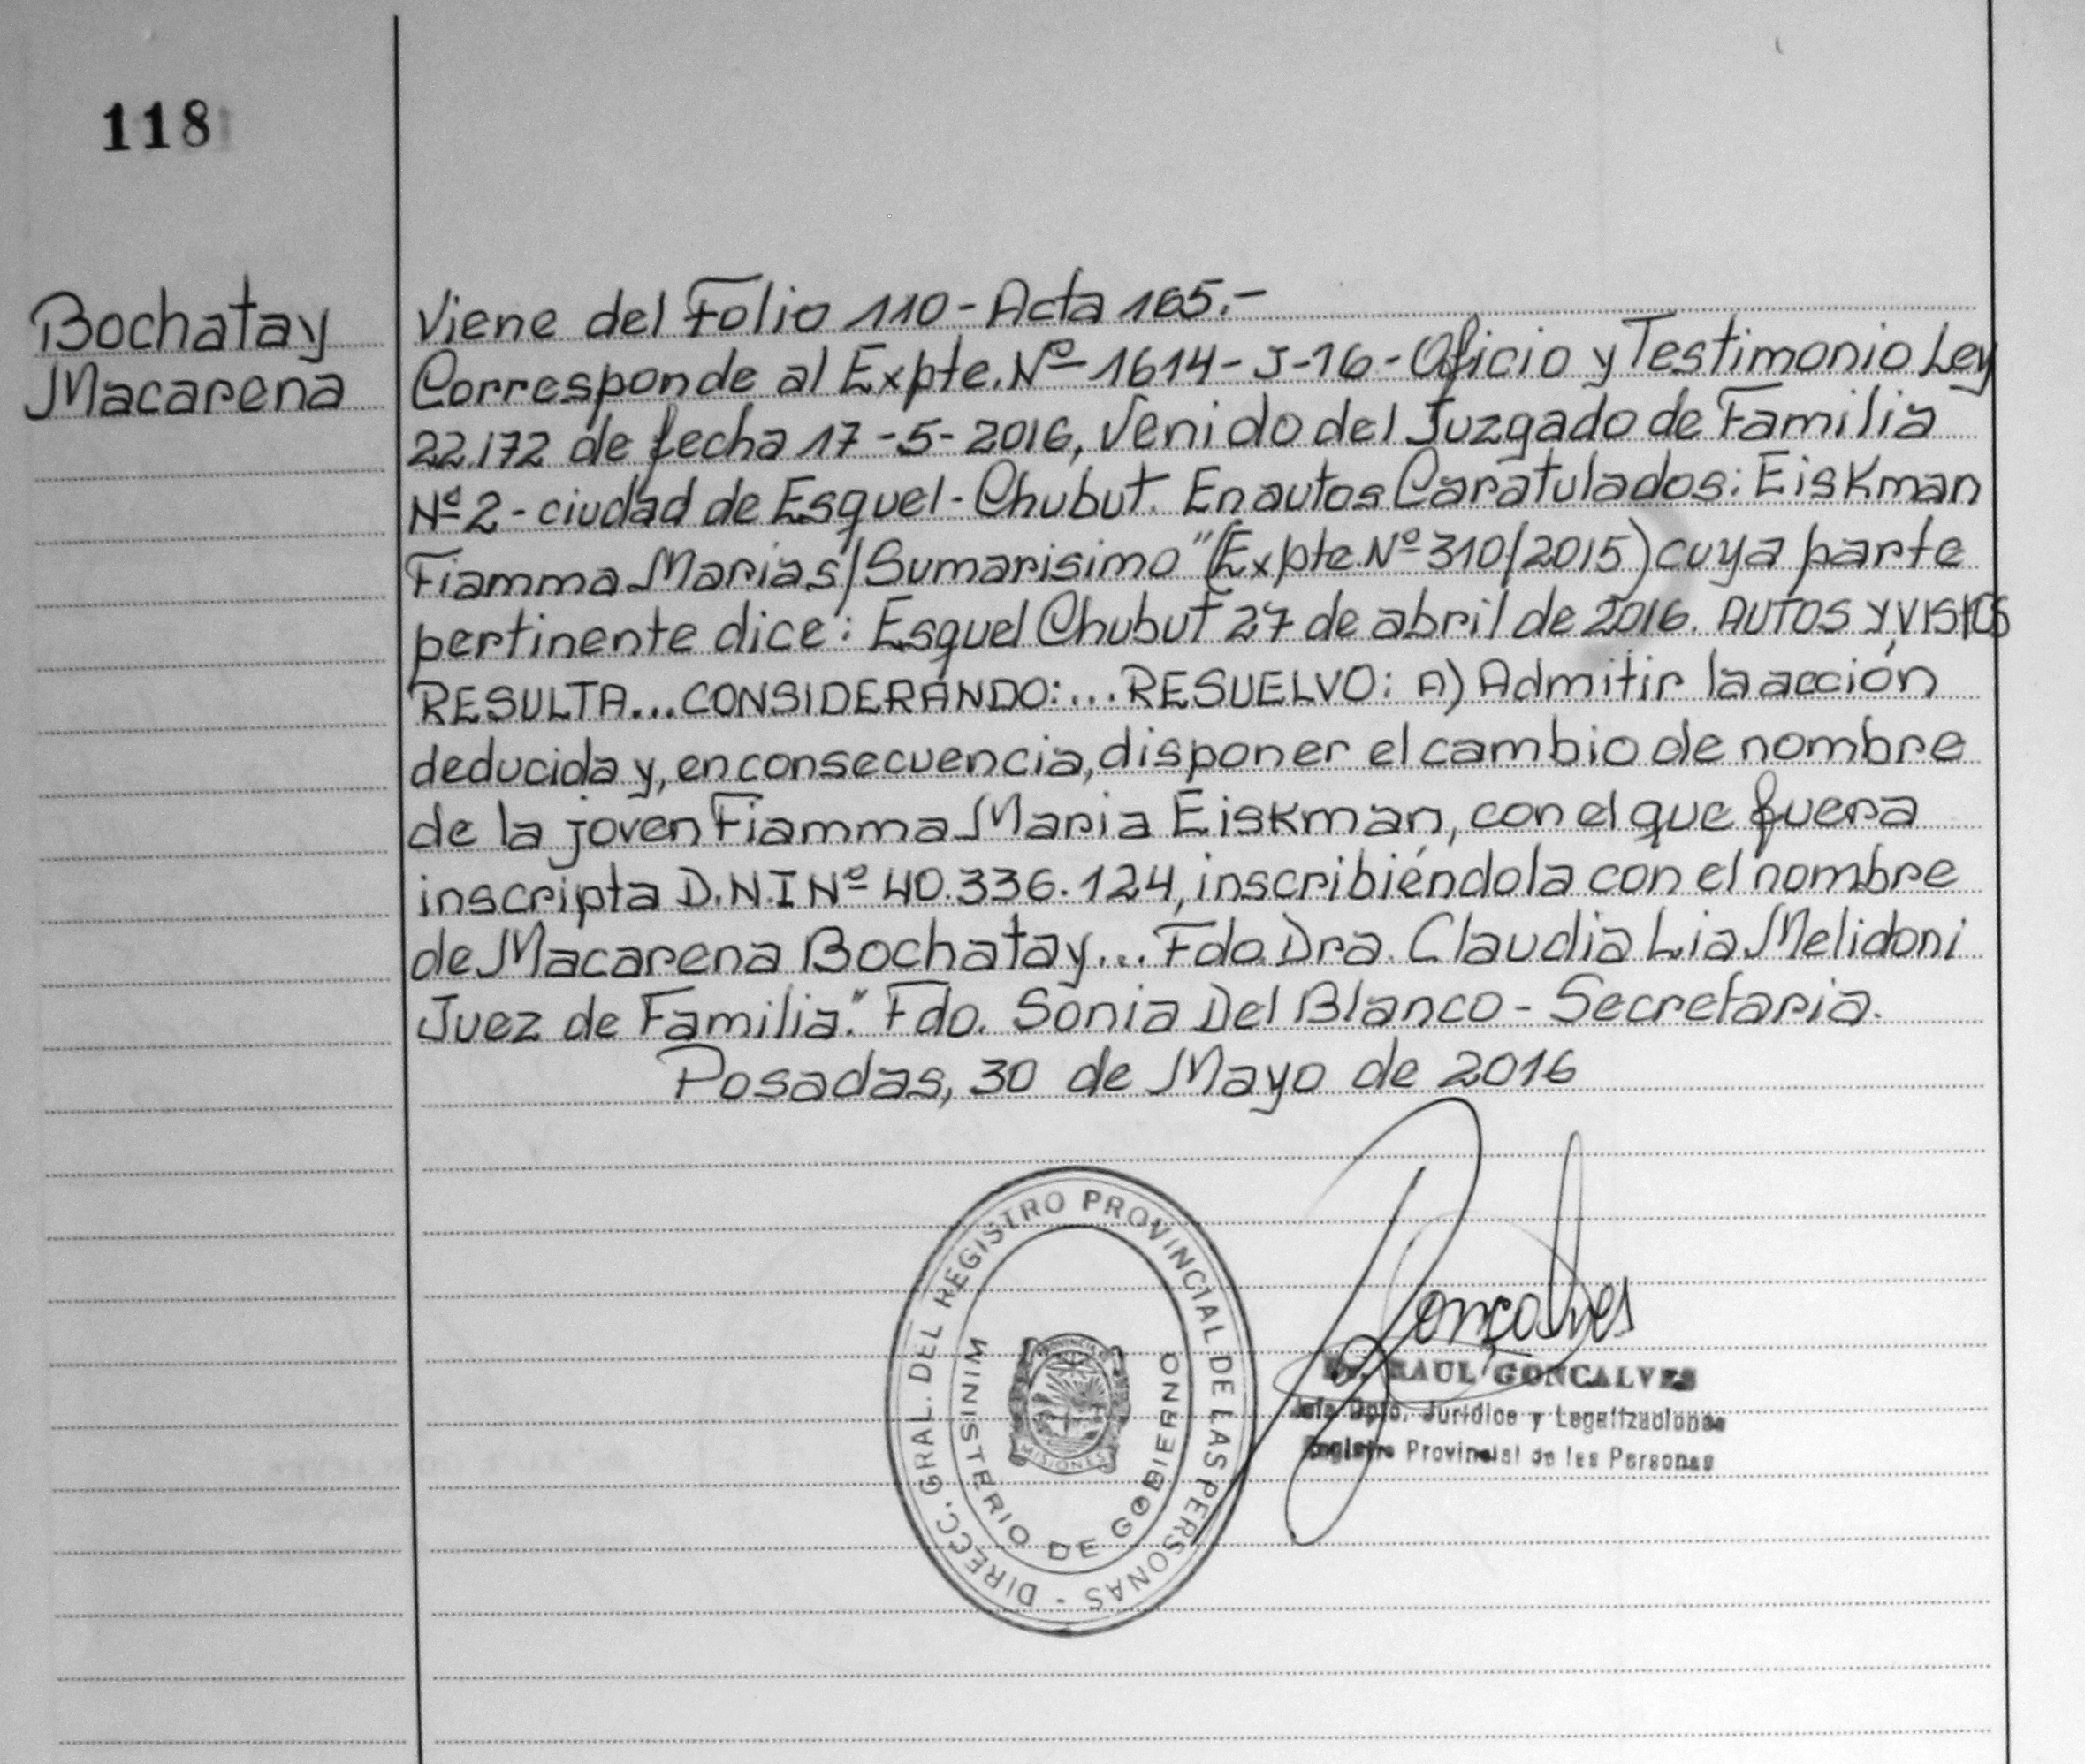 118
Bochatay
Macarena
Viene del Folio 110 - Acta 165.-
Corresponde al Expte. Nº 1614 - J - 16 - Oficio y Testimonio Ley
22.172 de fecha 17 - 5 - 2016, Venido del Juzgado de Familia
Nº 2 - ciudad de Esquel - Chubut. En autos Caratulados: Eiskman
Fiamma Maria s/ Sumarisimo" (Expte. Nº 310/2015) cuya parte
pertinente dice: Esquel Chubut 27 de abril de 2016. AUTOS Y VISTOS
RESULTA... CONSIDERANDO:... RESUELVO: A) Admitir la acción
deducida y, en consecuencia, disponer el cambio de nombre
de la joven Fiamma Maria Eiskman, con el que fuera
inscripta D.N.I Nº 40.336.124, inscribiéndola con el nombre
de Macarena Bochatay... Fdo. Dra. Claudia Lia Melidoni
Juez de Familia." Fdo. Sonia Del Blanco - Secretaria.
Posadas, 30 de Mayo de 2016
DIRECC. GRAL. DEL REGISTRO PROVINCIAL DE LAS PERSONAS -
MINISTERIO DE GOBIERNO
PROVINCIA DE
MISIONES
Goncalves
Dr. RAUL GONCALVES
Jefe Dpto. Jurídico y Legalizaciones
Registro Provincial de las Personas